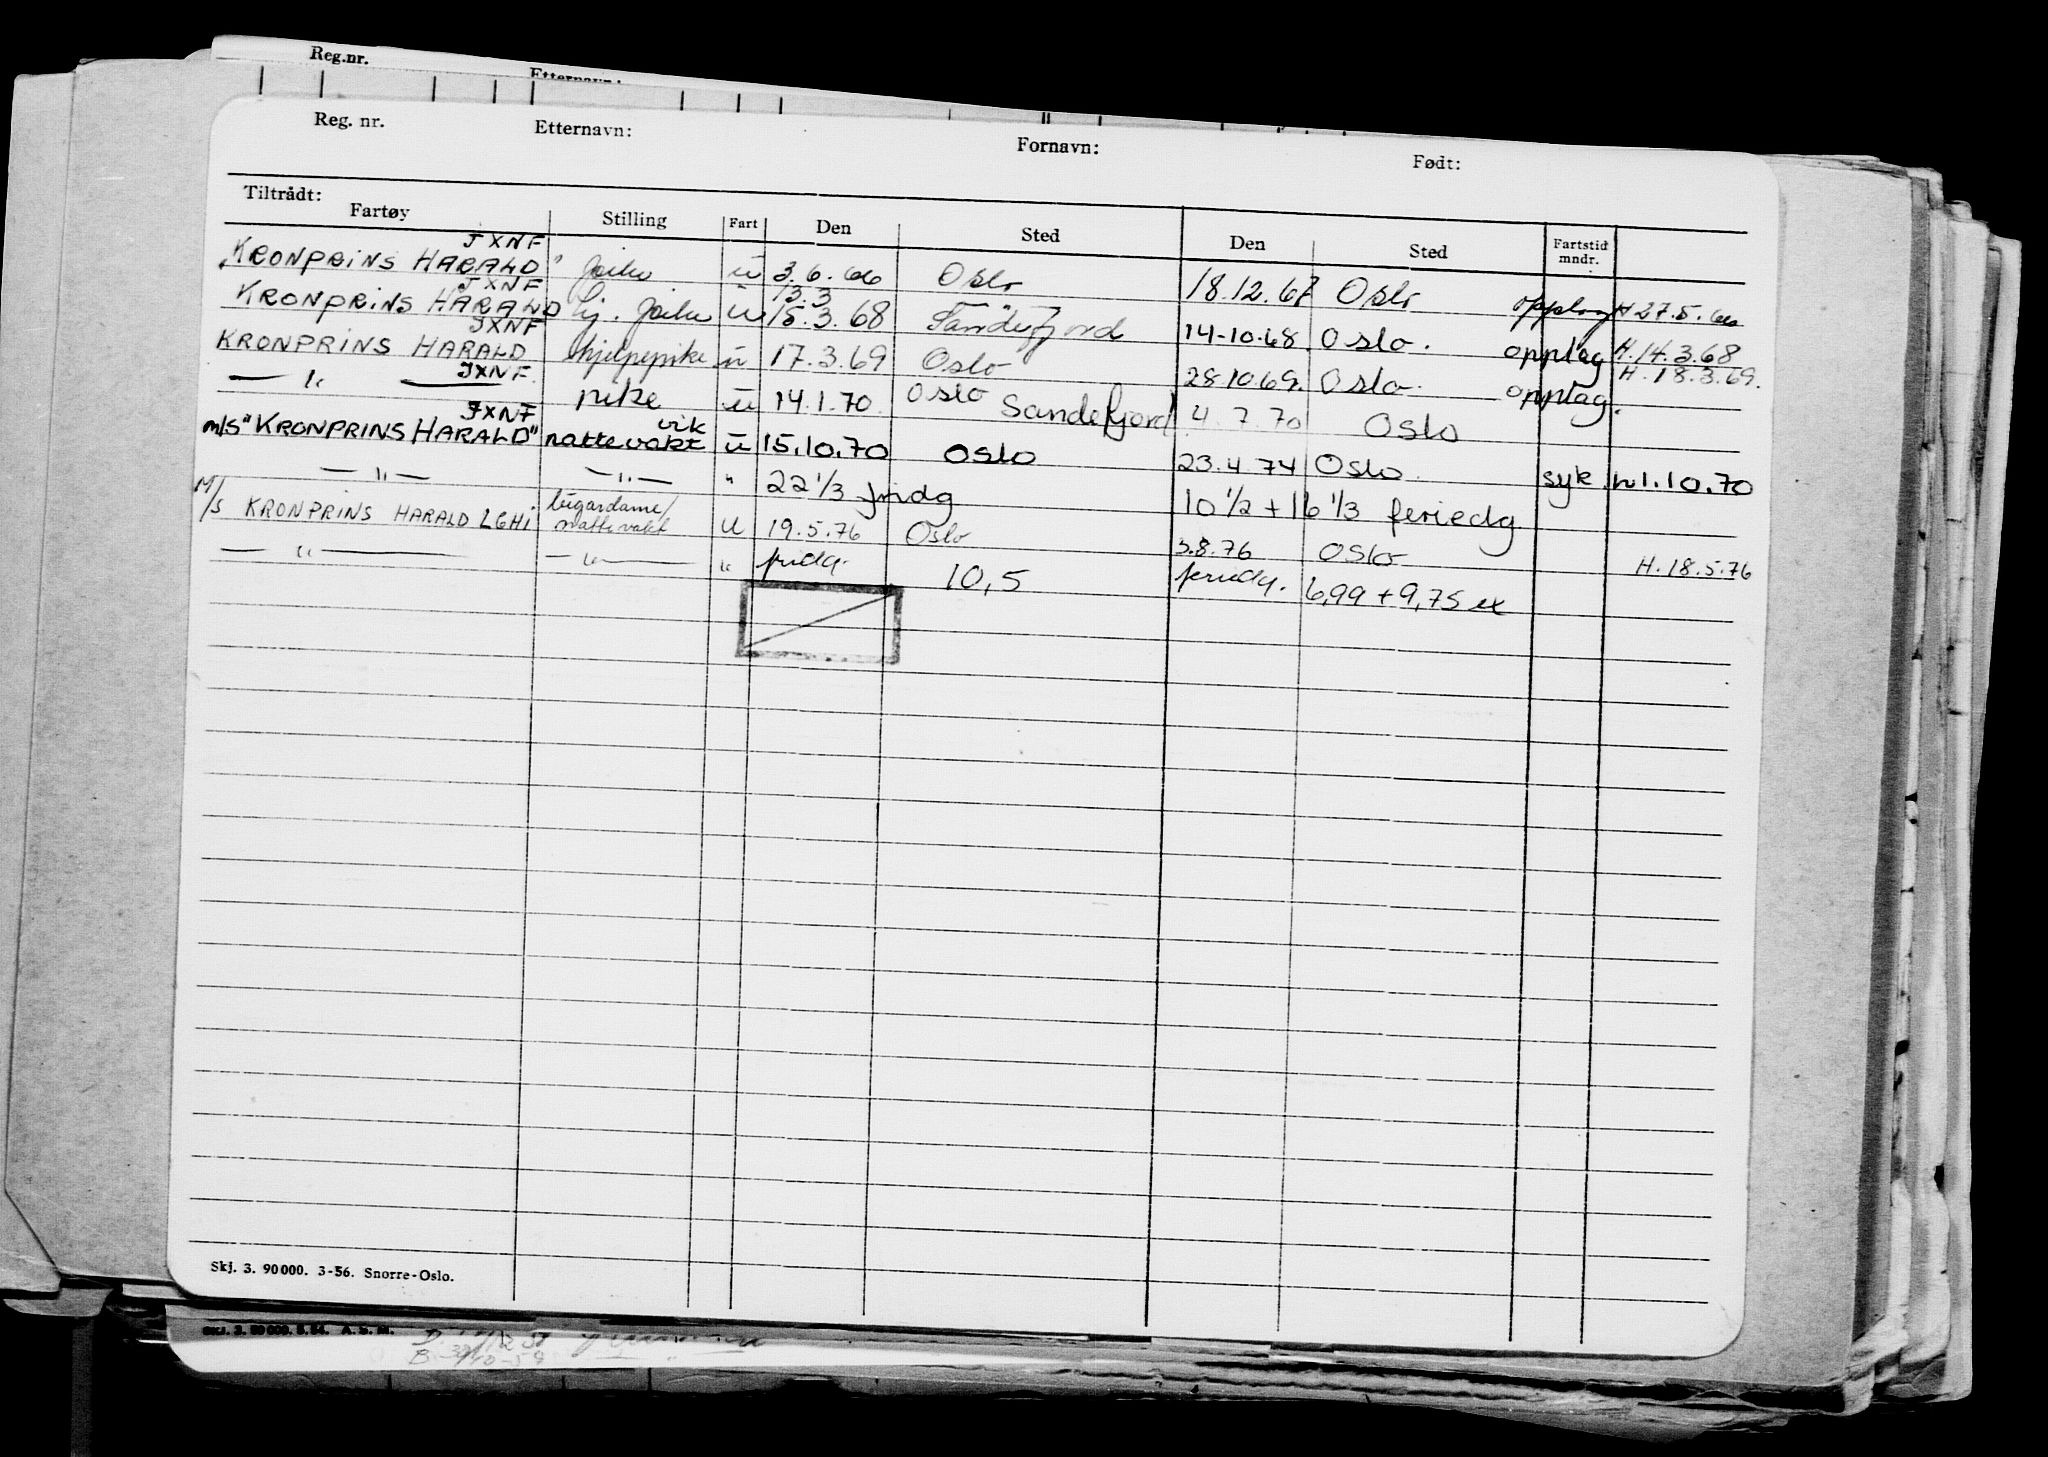 Reg.nr.
Etternavn:
Reg. nr. Etternavn: Fornavn: Født:
Tiltrådt:
Fartøy Stilling Fart Den Sted Den Sted Fartstid mndr.
JXNF
"KRONPRINS HARALD" pike u 3.6.66 Oslo 18.12.67 Oslo opplag H 27.5.66
JXNF 13.3
KRONPRINS HARALD hj. pike u 15.3.68 Sandefjord 14-10-68 Oslo. opplag H. 14.3.68
JXNF
KRONPRINS HARALD hjelpepike u 17.3.69 Oslo 28.10.69. Oslo. opplag. H. 18.3.69.
— " — JXNF. pike u 14.1.70. Oslo Sandefjord 4.7.70 Oslo
JXNF vik
m/s "KRONPRINS HARALD" nattevakt u 15.10.70 Oslo 23.4.74 Oslo. syk h 1.10.70
— " — — " — " 22 1/3 fridg 10 1/2 + 16 1/3 feriedg
M/S KRONPRINS HARALD LGHI lugardame/ nattevakt u 19.5.76 Oslo 3.8.76 Oslo H. 18.5.76
— " — — " — " fridg. 10,5 feriedg. 6,99 + 9,75 ex
Skj. 3. 90000. 3-56. Snorre-Oslo.
SKJ. 3. 90 000. 5.54. A. S. M.